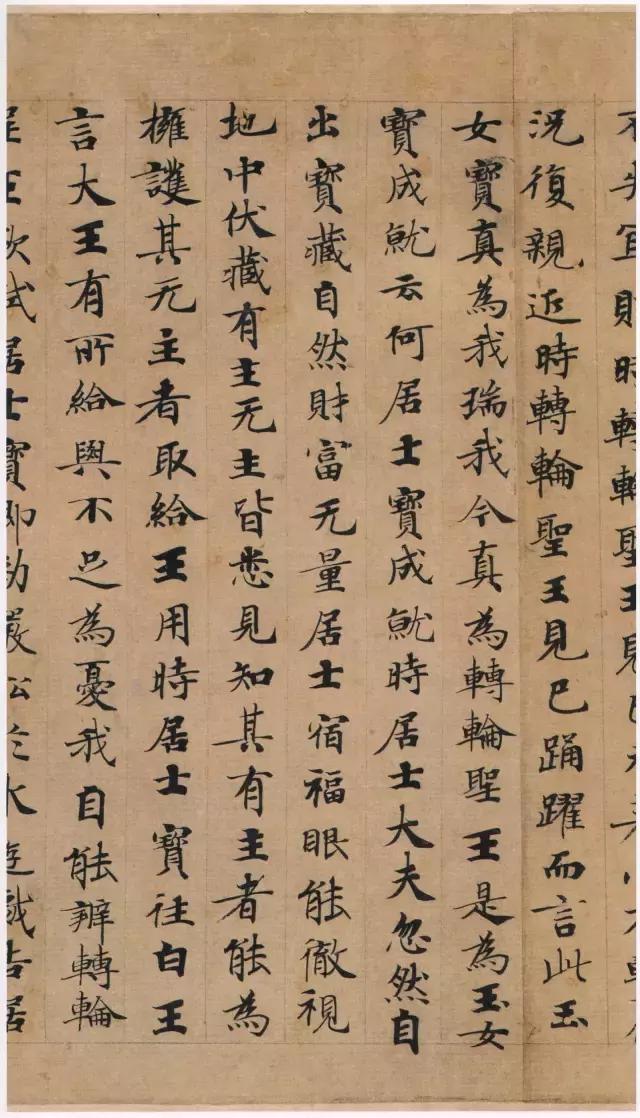 不失宜則時轉輪聖王見
況復親近時轉輪聖王見已踊躍而言此玉
女寶真為我瑞我今真為轉輪聖王是為玉女
寶成就云何居士寶成就時居士大夫忽然自
出寶藏自然財富无量居士宿福眼能徹視
地中伏藏有主无主皆悉見知其有主者能為
擁護其无主者取給王用時居士寶往白王
言大王有所給與不足為憂我自能辦轉輪
聖王欲試居士寶即勑嚴舩於水遊戲告居